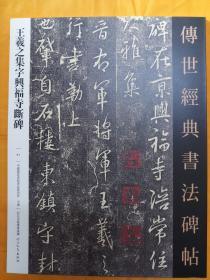 傳世經典書法碑帖
碑在京興福寺陪常住
人雅集
晉右軍將軍王羲之
行書勒上
自石樓東鎮
王羲之集字興福寺斷碑